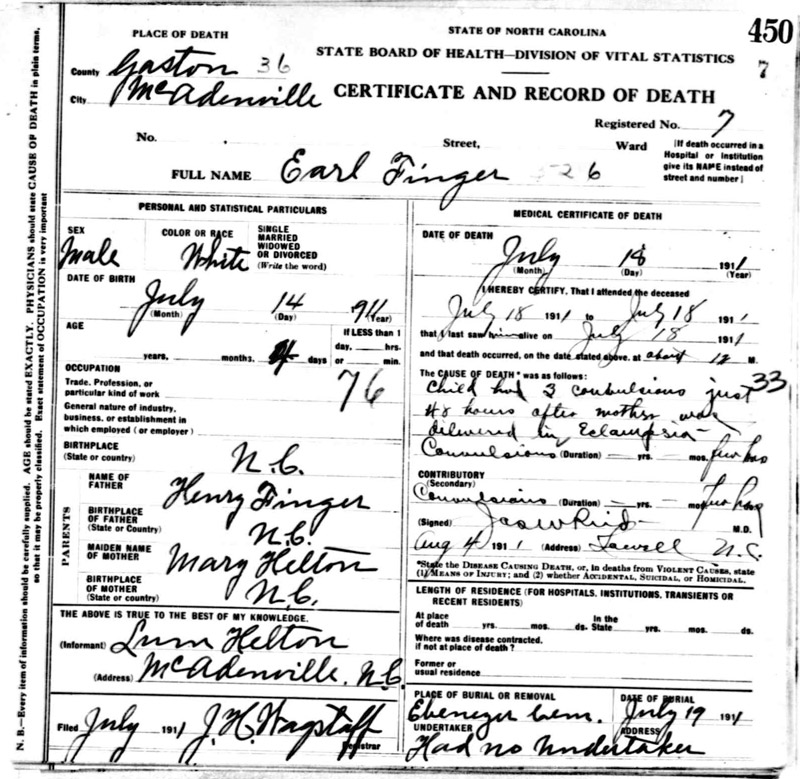 450
7
PLACE OF DEATH
STATE OF NORTH CAROLINA
STATE BOARD OF HEALTH—DIVISION OF VITAL STATISTICS
County Gaston 36
City McAdenville
CERTIFICATE AND RECORD OF DEATH
Registered No. 7
No. Street, Ward
[If death occurred in a Hospital or Institution give its NAME instead of street and number]
FULL NAME Earl Finger 26
PERSONAL AND STATISTICAL PARTICULARS
SEX Male
COLOR OR RACE White
SINGLE MARRIED WIDOWED OR DIVORCED (Write the word)
DATE OF BIRTH
July 14 1911
(Month) (Day) (Year)
AGE
years, months, 4 days
If LESS than 1 day, hrs. or min.
OCCUPATION
Trade, Profession, or particular kind of work
76
General nature of industry, business, or establishment in which employed (or employer)
BIRTHPLACE (State or country) N.C.
PARENTS
NAME OF FATHER Henry Finger
BIRTHPLACE OF FATHER (State or Country) N.C.
MAIDEN NAME OF MOTHER Mary Helton
BIRTHPLACE OF MOTHER (State or country) N.C.
THE ABOVE IS TRUE TO THE BEST OF MY KNOWLEDGE.
(Informant) Lum Helton
(Address) McAdenville, N.C.
Filed July 1911 J.H. Wagstaff
Registrar
MEDICAL CERTIFICATE OF DEATH
DATE OF DEATH
July 18 1911
(Month) (Day) (Year)
I HEREBY CERTIFY, That I attended the deceased
July 18 1911 to July 18 1911
that I last saw him alive on July 18 1911
and that death occurred, on the date stated above, at about 12 M.
The CAUSE OF DEATH* was as follows: 33
Child had 3 convulsions just
48 hours after mother was
delivered in Eclampsia—
Convulsions (Duration) — yrs. — mos. few hrs
CONTRIBUTORY (Secondary)
Convulsions (Duration) — yrs. — mos. few hrs
(Signed) Jas W Reid M.D.
Aug 4 1911 (Address) Lowell N.C.
*State the DISEASE CAUSING DEATH, or, in deaths from VIOLENT CAUSES, state
(1) MEANS OF INJURY; and (2) whether ACCIDENTAL, SUICIDAL, or HOMICIDAL.
LENGTH OF RESIDENCE (FOR HOSPITALS, INSTITUTIONS, TRANSIENTS OR RECENT RESIDENTS)
At place of death yrs. mos. ds. In the State yrs. mos. ds.
Where was disease contracted, if not at place of death?
Former or usual residence
PLACE OF BURIAL OR REMOVAL Ebenezer Cem.
DATE OF BURIAL July 19 1911
UNDERTAKER ADDRESS
Had no Undertaker
N. B.—Every item of information should be carefully supplied. AGE should be stated EXACTLY. PHYSICIANS should state CAUSE OF DEATH in plain terms,
so that it may be properly classified. Exact statement of OCCUPATION is very important